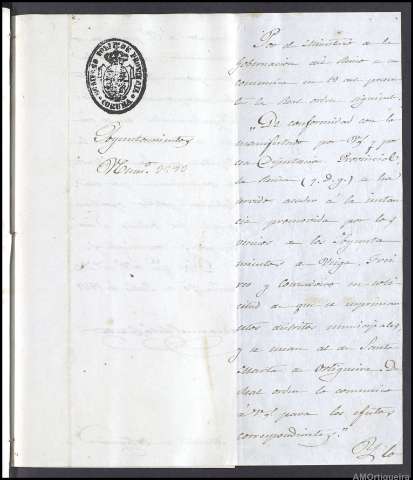 CORUÑA
Ayuntamientos
Num.º
Por el Ministerio de la
Gobernacion del Reino se
comunica en 10 del presente
la Real orden siguiente.
"De conformidad con lo
manifestado por V.S. y por
esa Diputacion Provincial,
la Reina (q. D. g.) se ha
servido acceder a la instancia
promovida por los
vecinos de los Ayuntamientos
de Mog
Freires
y Couzadoiro en solicitud
de que se supriman
sus distritos municipales,
y se unan al de Santa
Marta de Ortigueira. De
Real orden lo comunico
á V.S. para los efectos
correspondientes."
Y lo
AMOrtigueira